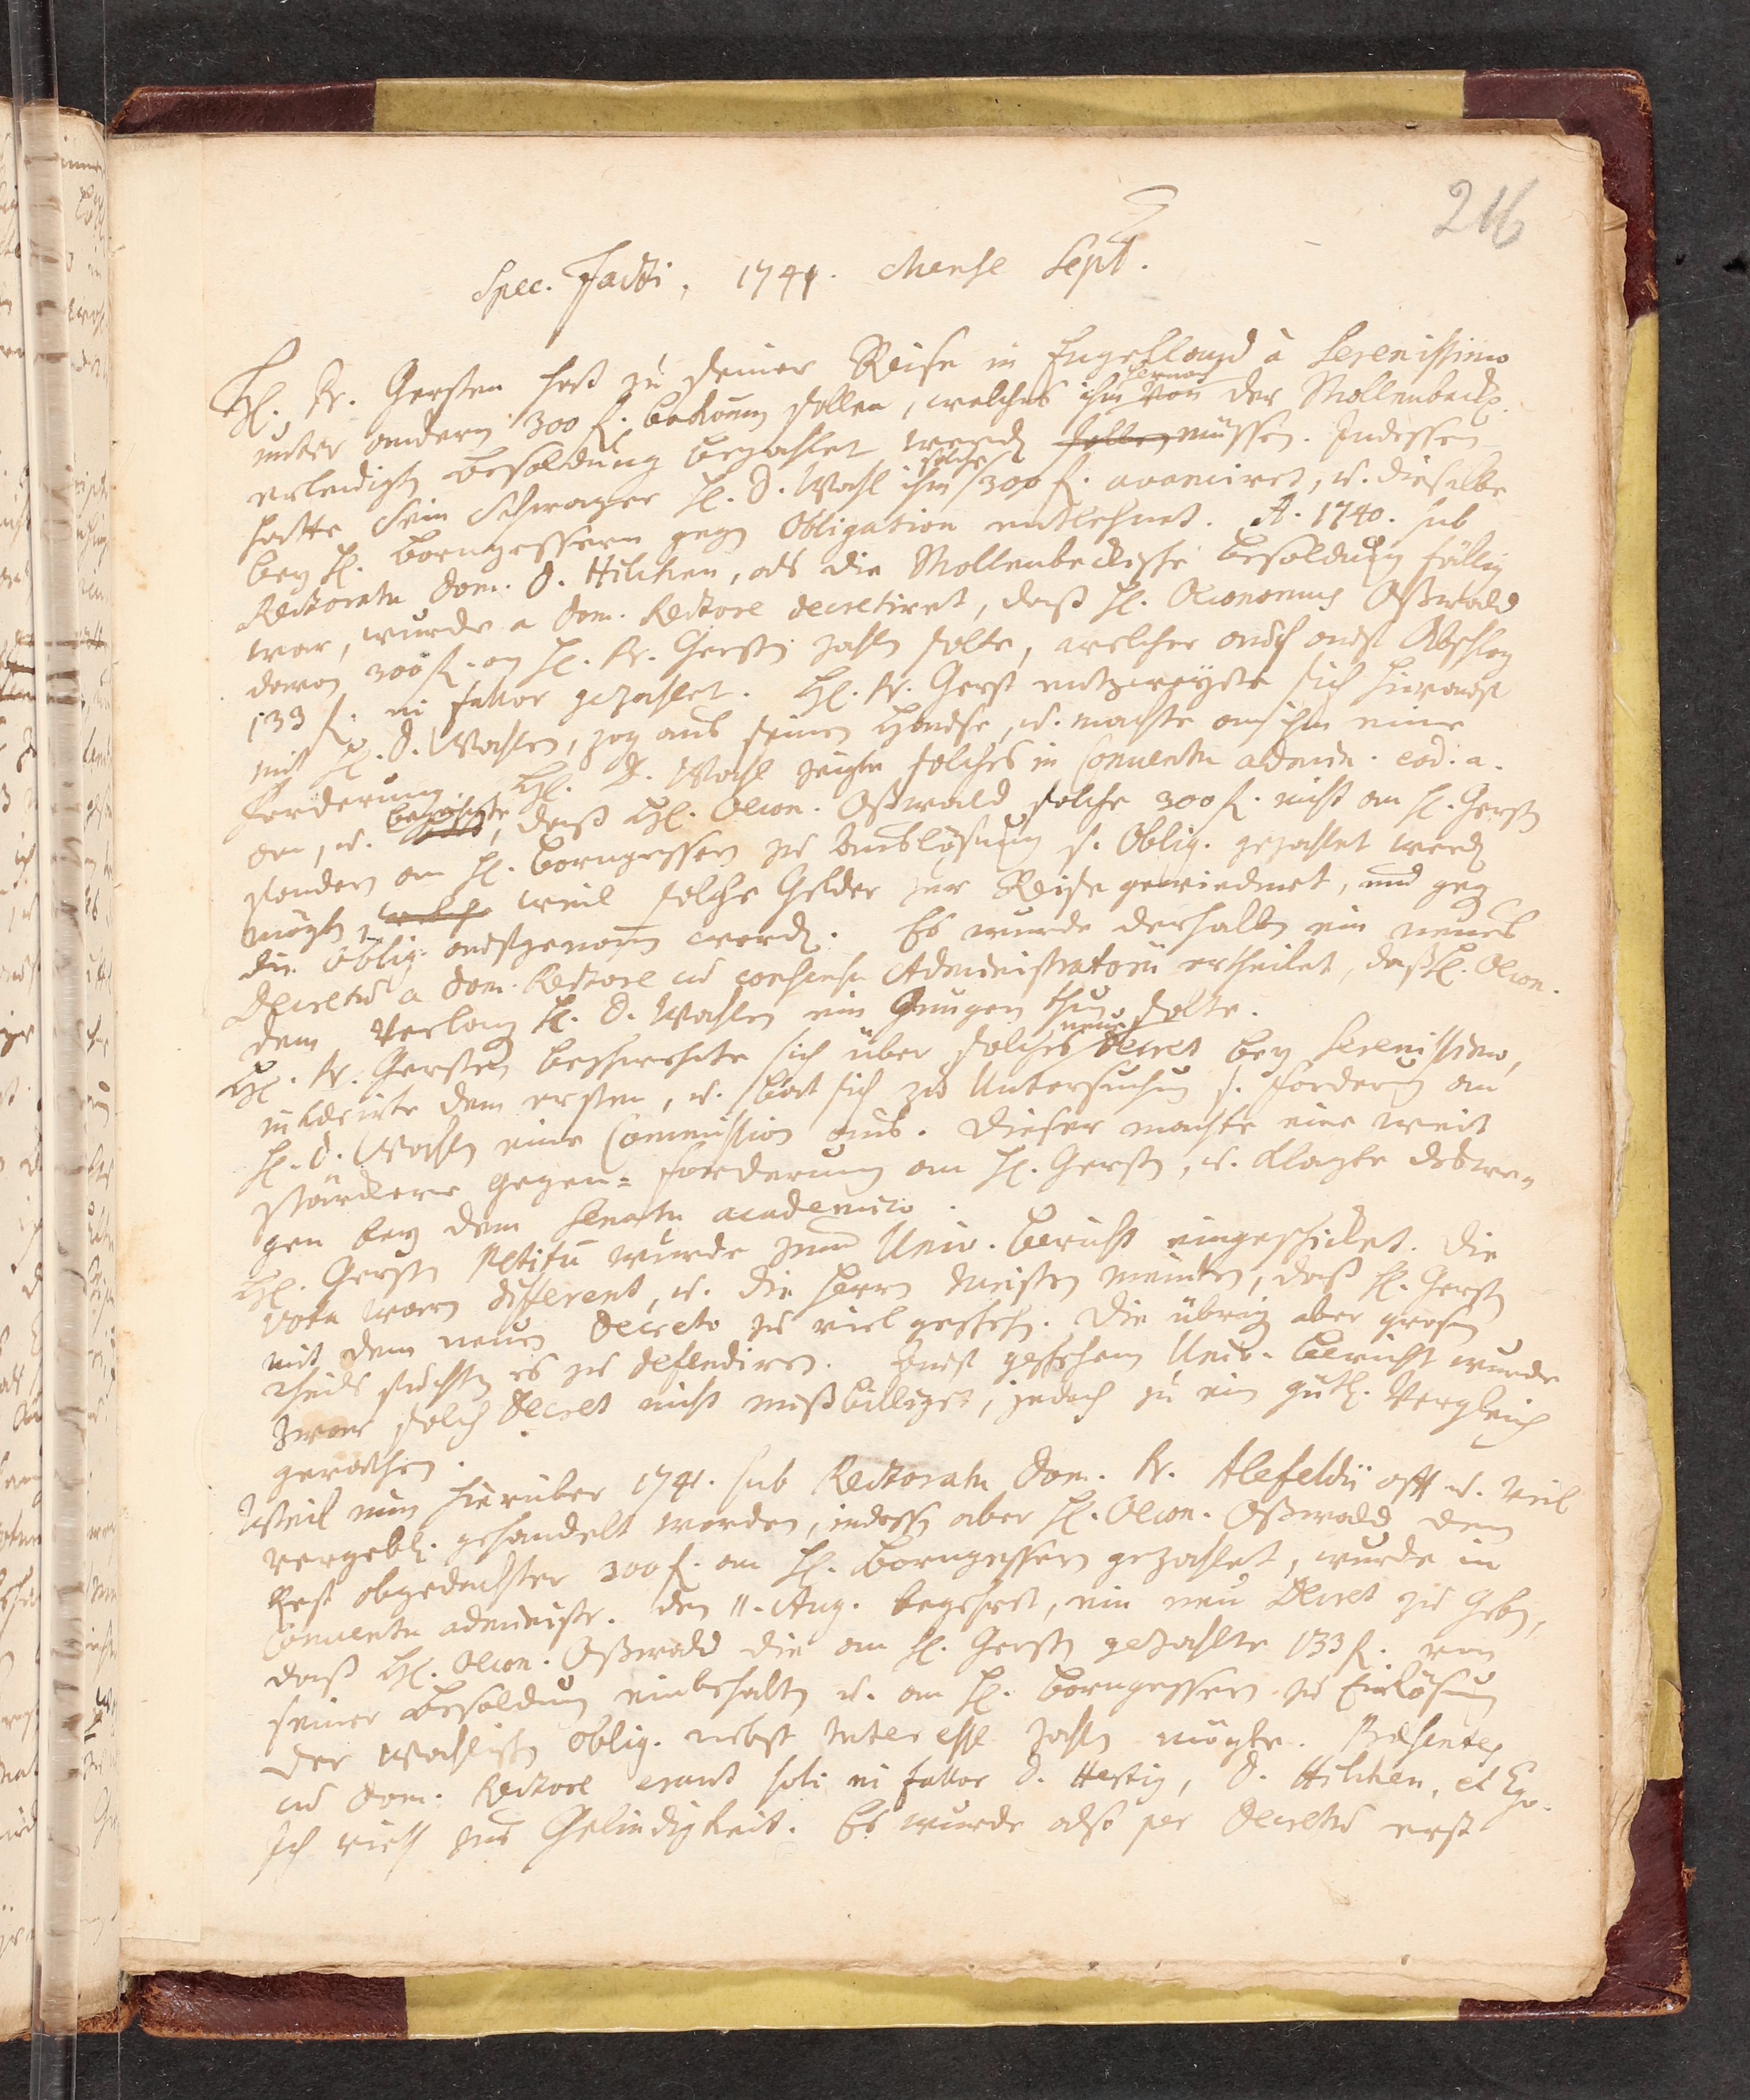 216
Spec. Facti, 1741. Mense Sept.
Hl. Pr. Gersten hat zu seiner Reise in Engelland à Serenissimo
unter andern 300 f. bekomen sollen, welches ihm hernach von der Mollenbeck.
erledigten Besoldung bezahlet werden sollen müssen. Indessen
hatte sein Schwager H. D. Wahl ihm solche 300 f. avanciret, u. dieselbe
bey H. Borngessern gegen Obligation entlehnet. A. 1740. sub
Rectoratu Dom. D. Hilchen, als die Mollenbeckische Besoldung fällig
war, wurde a Dom. Rectore decretiret, daß H. Oeconomus Oßwald
davon 300 f. an H. Pr. Gersten zahlen solte, welcher auch auf Abschlag
133 f. ni fallor gezahlet. Hl. Pr. Gerst entzweyete sich hierauf
mit H. D. Wahlen, zog aus seinem Hauße, u. machte an ihm eine
Forderung. Hl. D. Wahl zeigte solches in Conventu admin. eod. a.
an, u. begehrte, daß Hl. Oecon. Oßwald solche 300 f. nicht an H. Gersten
sondern an H. Borngessern zu Auslösung s. Oblig. gezahlet werden
mögten, welche weil solche Gelder zur Reise gewiedmet, und gegen
die Oblig. aufgenomen worden. Es wurde derhalben ein neues
Decretum a Dom. Rectore cum consensu Administratorum ertheilet, daß H. Oecon.
dem Verlangen H. D. Wahlen ein Genügen thun solte.
Hl. Pr. Gersten beschwehrte sich über solches neue Decret bey Serenissimo,
inhaerirte dem ersten, u. bat sich zu Untersuchung s. Forderung an
H. D. Wahlen eine Commission aus. Dieser machte eine weit
stärckere Gegen-Forderung an H. Gersten, u. klagte deßwe-
gen bey dem Senatu academico.
Hl. Gersten Petitum wurde zum Univ. Bericht eingeschicket. Die
Vota waren different, u. die Herrn meisten meinten, daß H. Gersten
mit dem neuen Decreto zu viel geschehen. Die übrigen aber grosen
Theils suchten es zu defendiren. Auf geschehenen Univ. Bericht wurde
zwar solch Decret nicht mißbilliget, jedoch zu ein gütl. Vergleich
gerathen.
Weil nun hierüber 1741. sub Rectoratu Dom. Pr. Alefeldii offt u. viel
vergebl. gehandelt worden, indessen aber H. Oecon. Oßwald den
Rest obgedachter 300 f. an H. Borngessern gezahlet, wurde in
Conventu administr. den 11. Aug. begehret, ein neu Decret zu geben,
daß Hl. Oecon. Oßwald die an H. Gersten gezahlte 133 f. von
seiner Besoldung einbehalten u. an H. Borngessern zu Einlösung
der Wahlischen Oblig. nebst Interesse zahlen mögte. Praesentes
cum Dom. Rectore erant soli ni fallor D. Hertig, D. Hilchen, et Ego.
Ich rieth zur Gelindigkeit. Es wurde also per Decretum erst